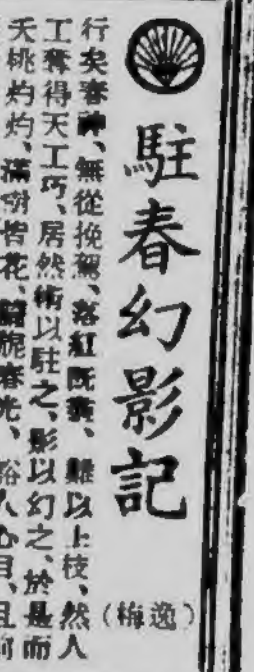 駐春幻影記
(梅逸)
行矣春神、無從挽駕、落紅既藉、難以上枝、然人
工奪得天工巧、居然術以駐之、影以幻之、於是而
夭桃灼灼、滿樹皆花、旖旎春光、豁人心目、且